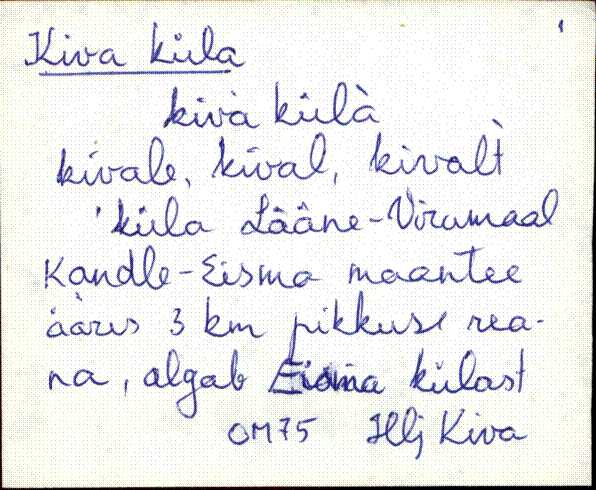 Kiva küla
kivà külà
kivale, kival, kivalt
'küla Lääne-Virumaal
Kandle-Eisma maantee
ääres 3 km pikkuse rea-
na, algab Eisma külast
OM75 Illj Kiva